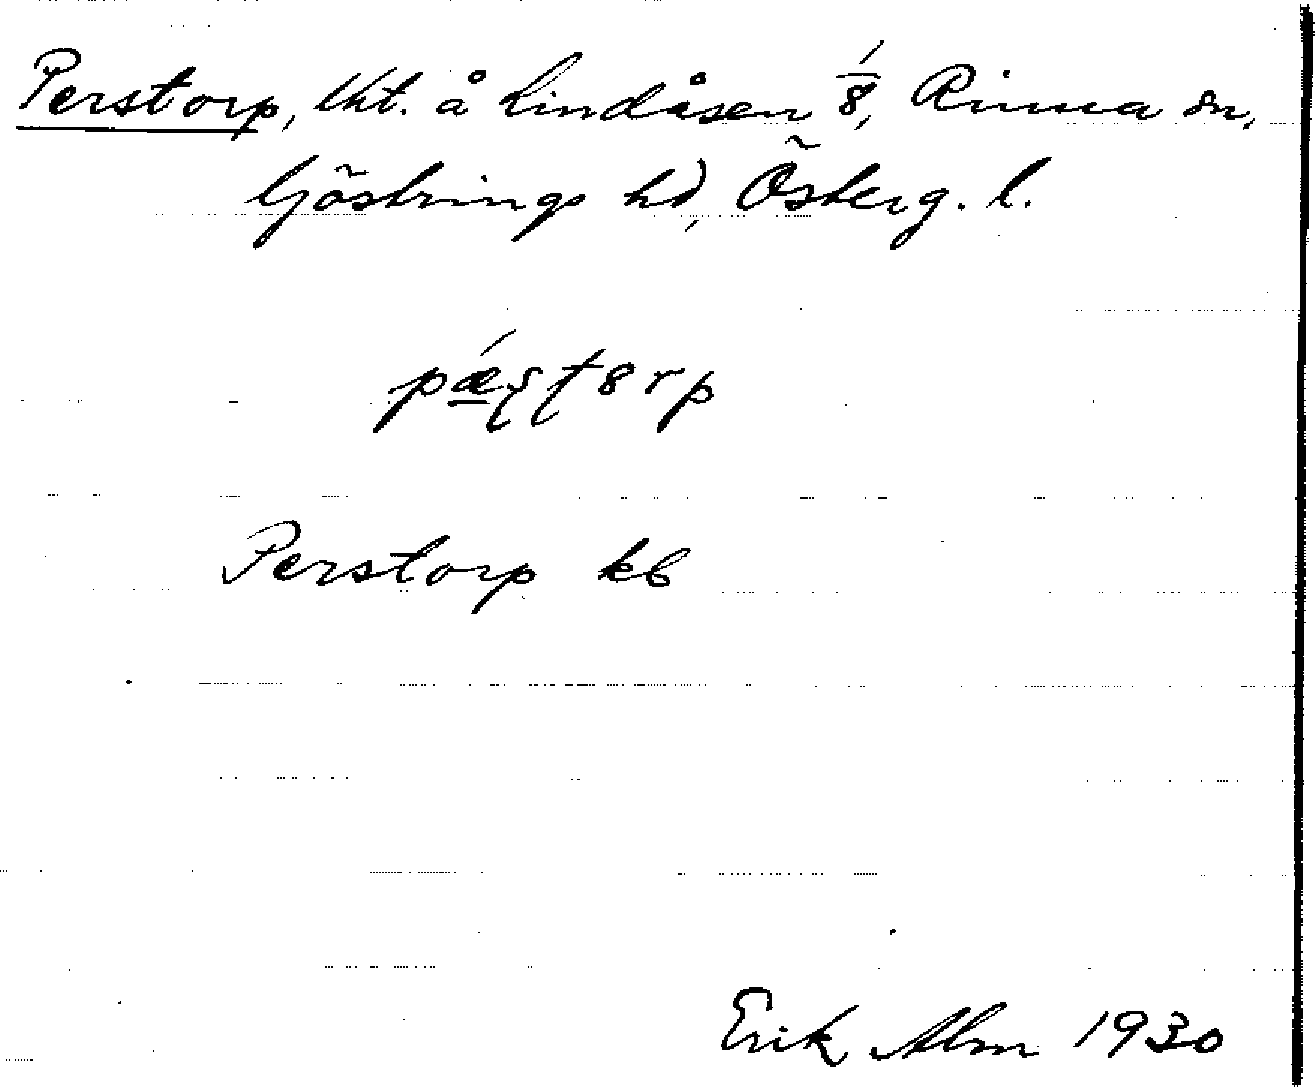 Perstorp, tkt. å Lindåsen 1/8, Rinna sn,
Göstrings hd, Österg. l.
pǽʂʈ8rp
Perstorp kb
Erik Alm 1930